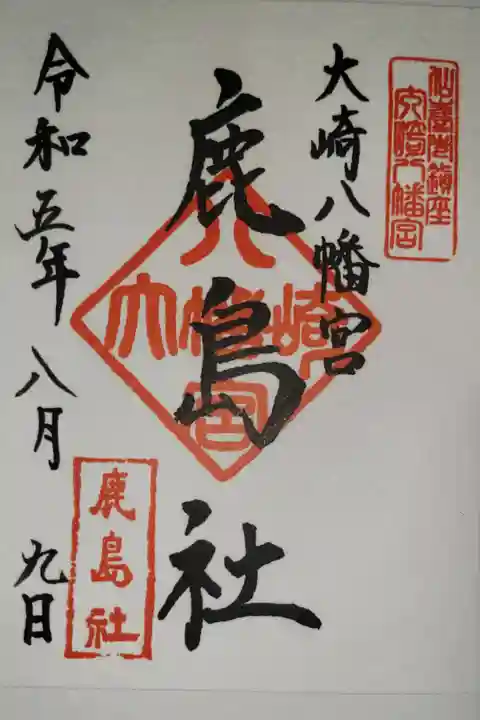 仙臺岩鎮座
大崎八幡宮
大崎八幡宮
鹿島社
大崎八幡宮
鹿島社
令和五年八月九日